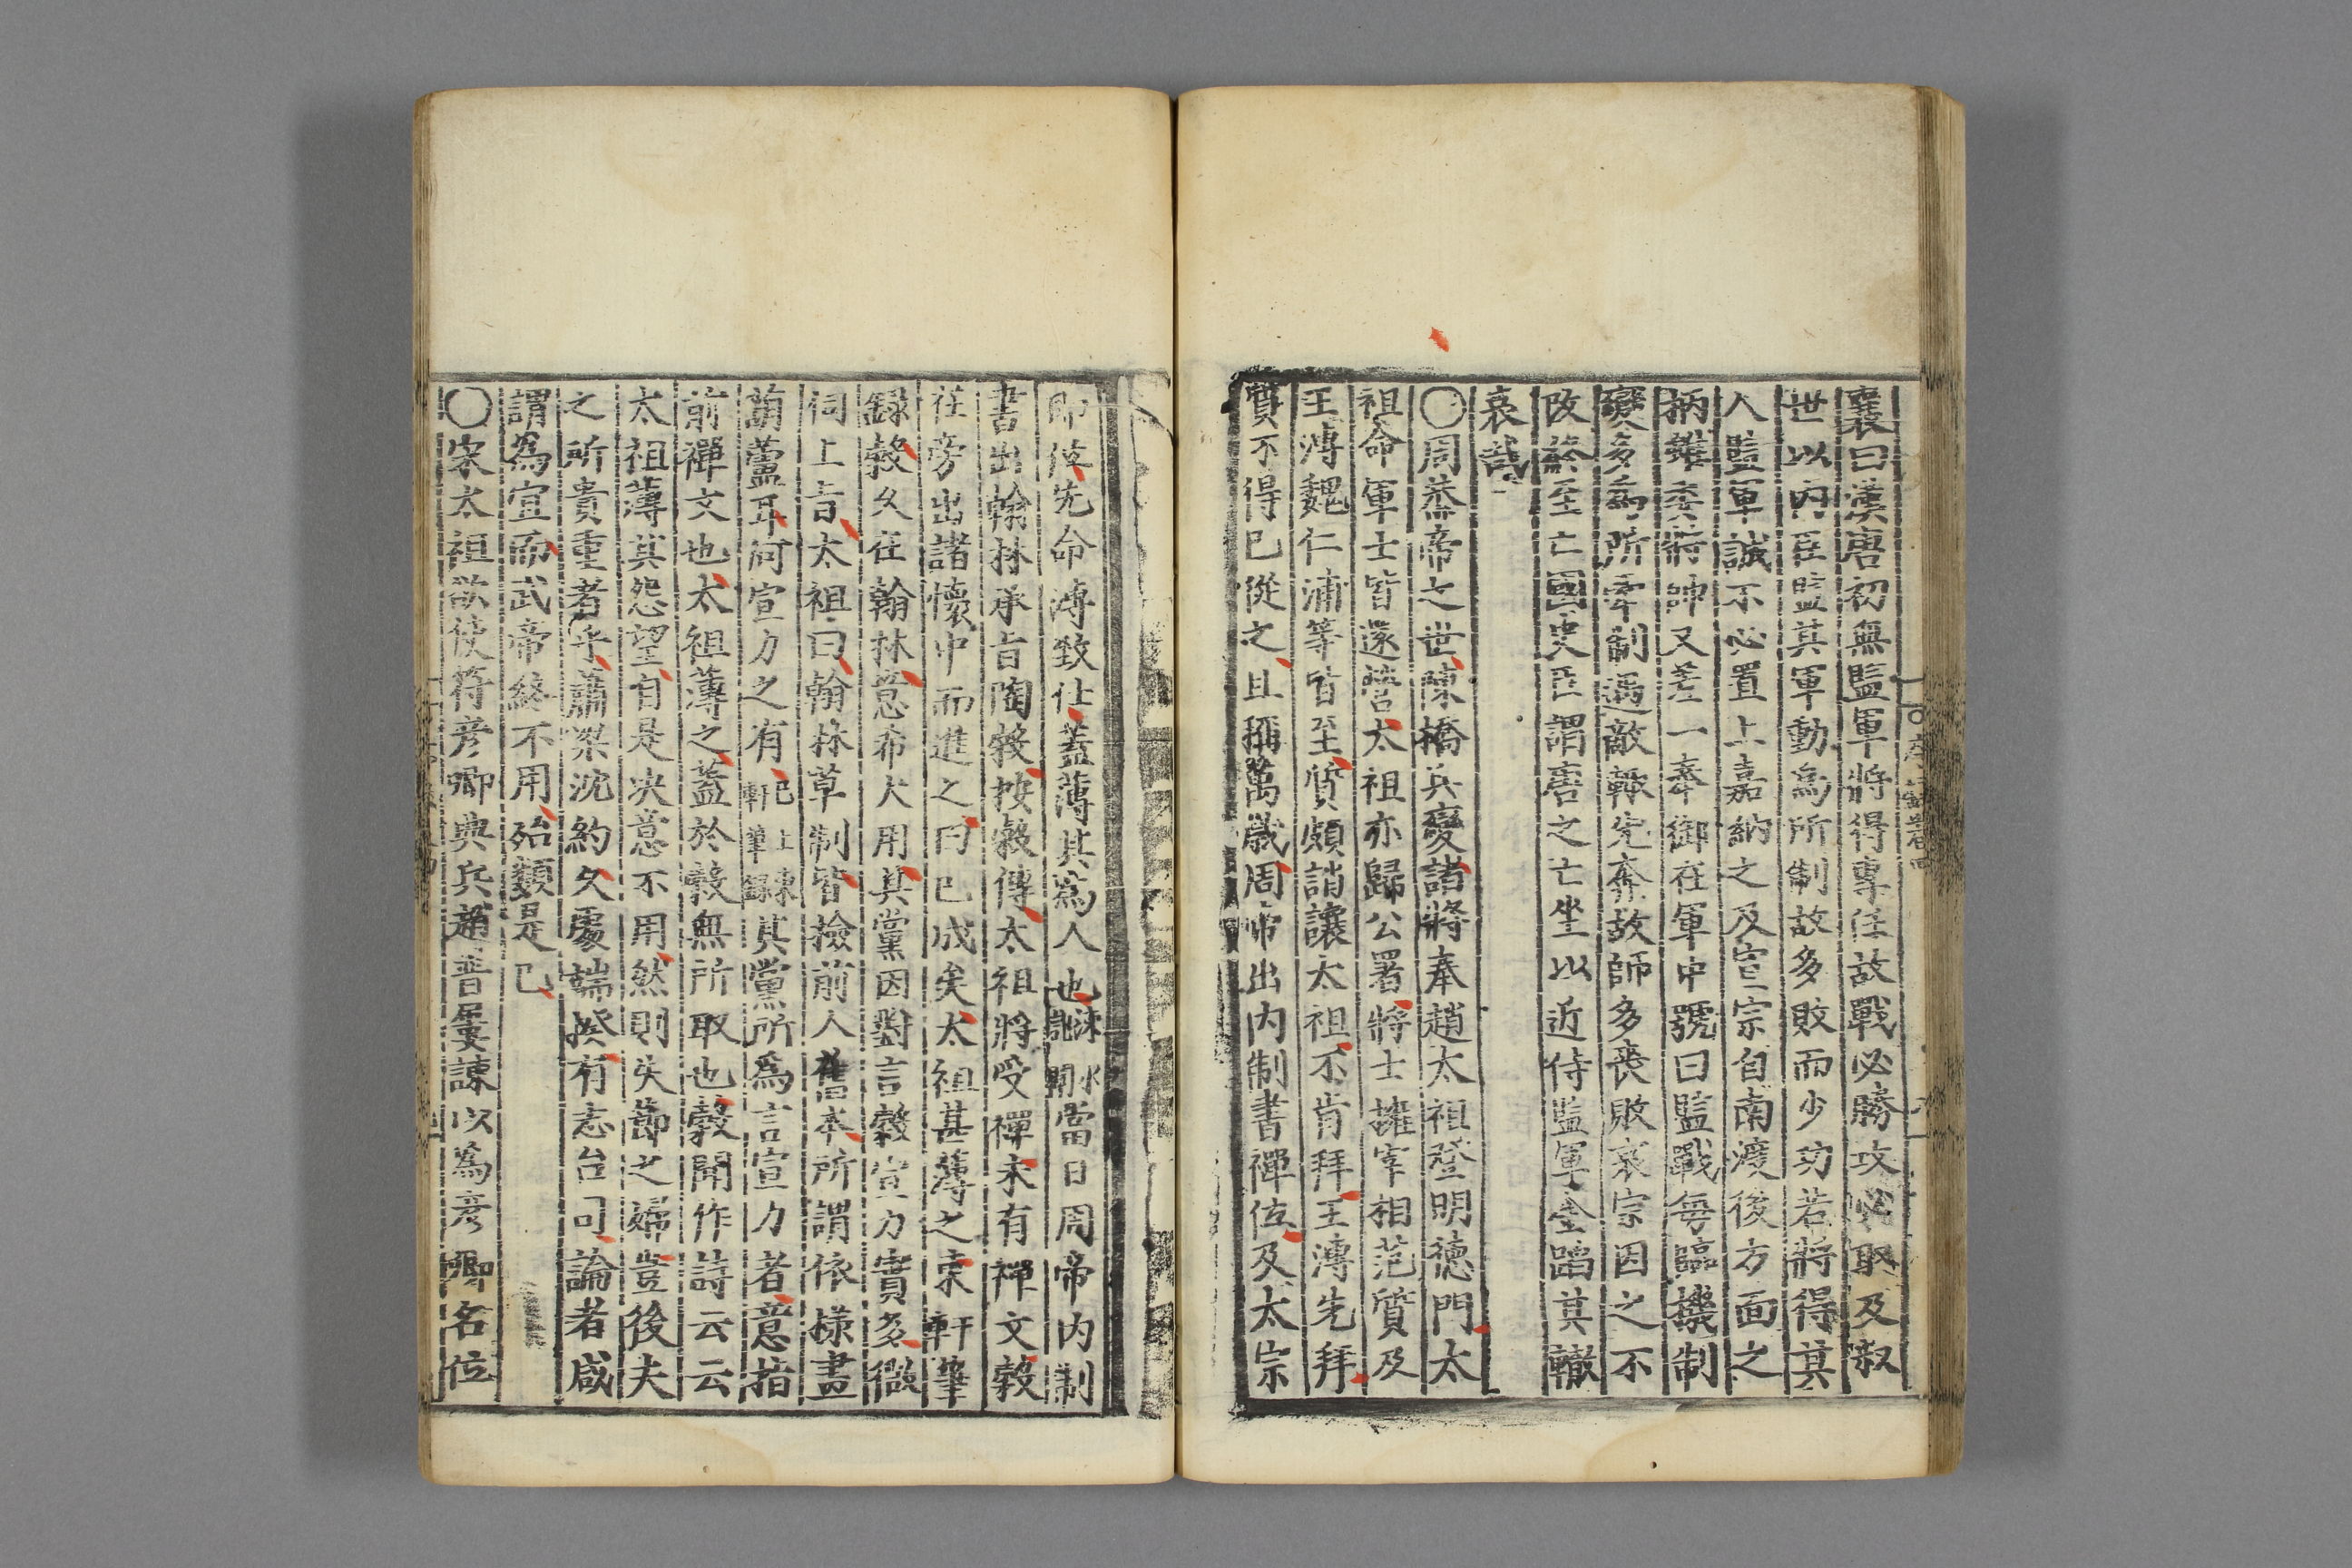 襄曰漢唐初無監軍將得專任故戰必勝攻必取及叔
世以内臣監其軍動為所制故多敗而少功若將得其
人監軍誠不必置上嘉納之及宣宗自南渡後方面之
柄雖委將帥又差一奉御在軍中號曰監戰每臨機制
變多為所牽制遇敵輙先奔故師多喪敗哀宗因之不
改終至亡國史臣謂唐之亡坐以近侍監軍金蹈其轍
哀哉
○周恭帝之世陳橋兵變諸將奉趙太祖登明德門太
祖命軍士皆還營太祖亦歸公署將士擁宰相范質及
王溥魏仁浦等皆至質頗誚讓太祖不肯拜王溥先拜
質不得已從之且稱萬歲周帝出内制書禪位及太宗
即位先命溥致仕蓋薄其為人也涑水記聞當日周帝内制
書出翰林承旨陶穀按穀傳太祖將受禪未有禪文穀
在旁出諸懷中而進之曰已成矣太祖甚薄之東軒筆
錄穀久在翰林意希大用其黨因對言穀宣力實多微
伺上旨太祖曰翰林草制皆撿前人舊本所謂依樣畫
葫蘆耳何宣力之有已上東軒筆錄其黨所為言宣力者意指
前禪文也太祖薄之蓋於穀無所取也穀聞作詩云云
太祖薄其怨望自是决意不用然則失節之婦豈後夫
之所貴重者乎蕭梁沈約久處端揆有志台司論者咸
謂為宜而武帝終不用殆類是已
○宋太祖欲使符彦卿典兵趙普屢諫以為彦卿名位